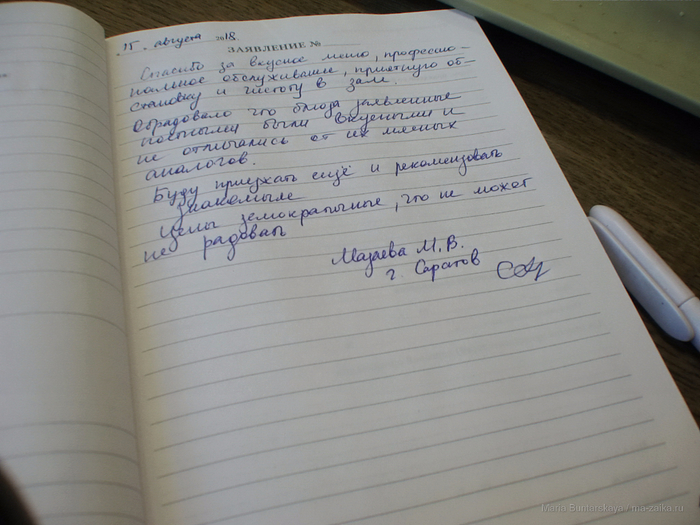 15. августа 2018
ЗАЯВЛЕНИЕ №
Спасибо за вкусное меню, профессио-
нальное обслуживание, приятную об-
становку и чистоту в зале.
Обрадовало что блюда заявленные
постными были вкусными и
не отличались от их мясных
аналогов.
Буду приезжать ещё и рекомендовать
знакомым
Цены демократичные, что не может
не радовать
Мазаева М.В.
г. Саратов
Maria Buntarskaya / ma-zaika.ru